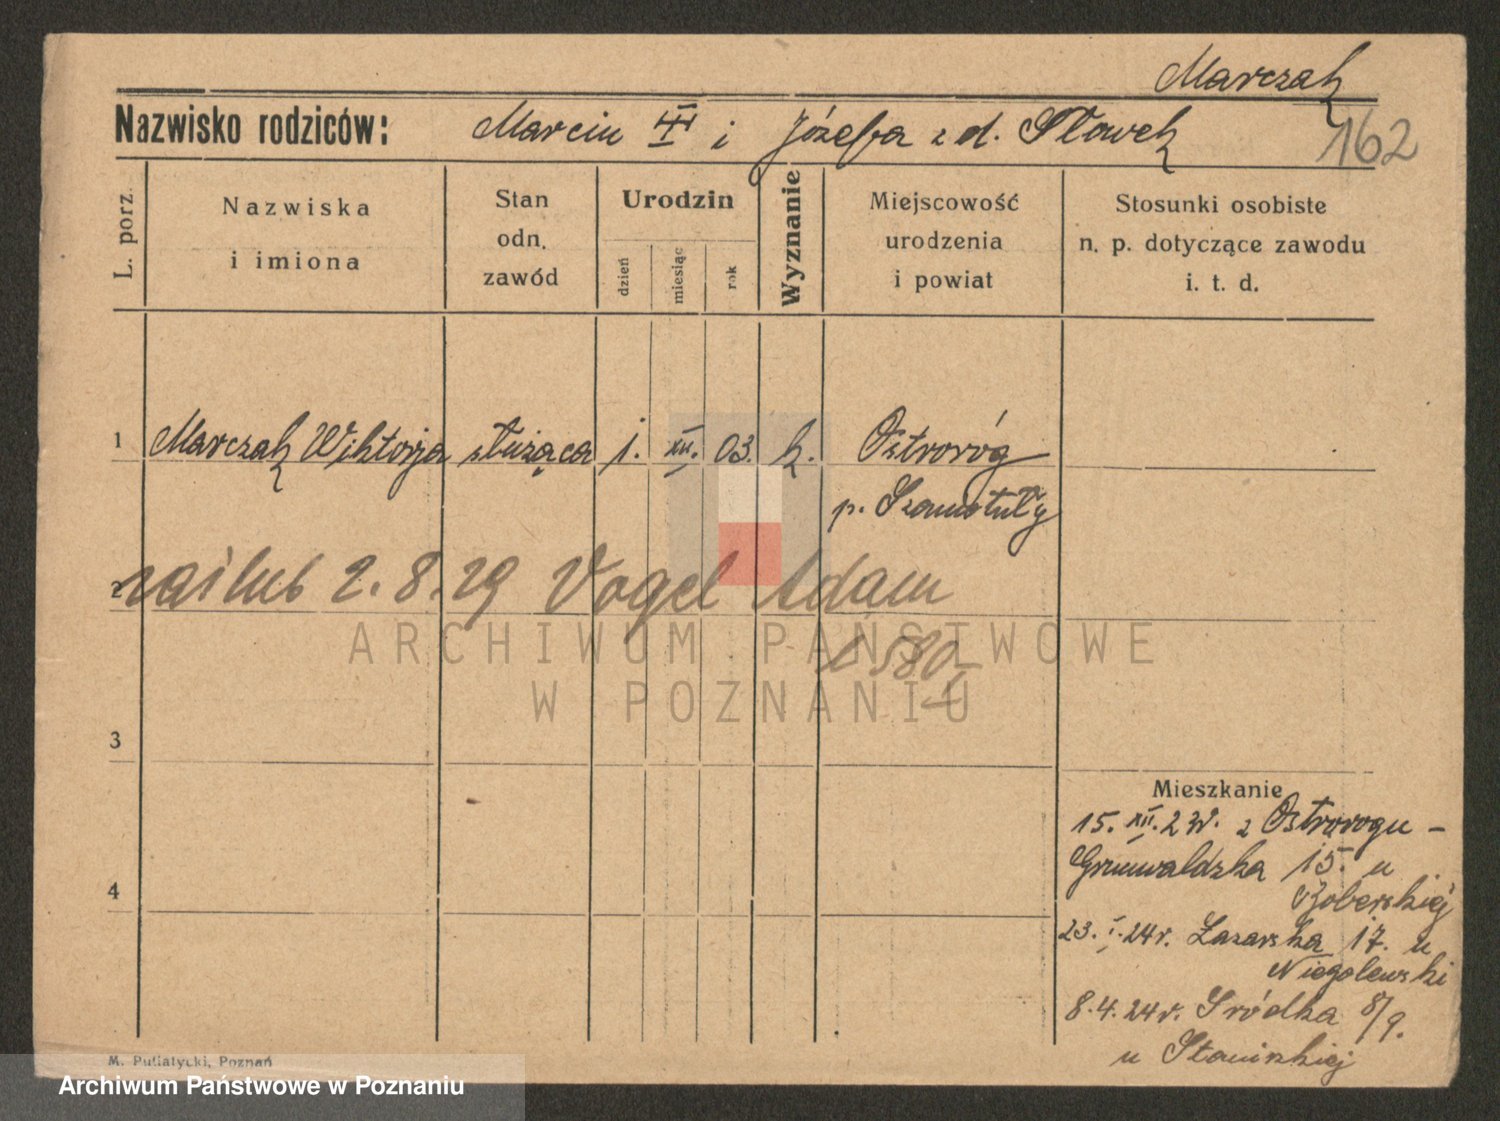 Marczak
Nazwisko rodziców: Marcin i Józefa z d. Słowek
162
L. porz.
Nazwiska
i imiona
Stan
odn.
zawód
Urodzin
dzień
miesiąc
rok
Wyznanie
Miejscowość
urodzenia
i powiat
Stosunki osobiste
n. p. dotyczące zawodu
i. t. d.
1 Marczak Wiktorja służąca 1. XII. 03. k. Ostroróg
p. Szamotuły
2 zaślub 2.8.29 Vogel Adam
1580
ARCHIWUM PAŃSTWOWE
W POZNANIU
3
Mieszkanie
15. XII. 23r. z Ostroroga –
Grunwaldzka 15. u
Boberskiej
4
23. I. 24r. Łazarska 17. u
Niegolewski
8.4.24r. Śródka 8/9.
u Słowińskiej
M. Putiatycki, Poznań
Archiwum Państwowe w Poznaniu